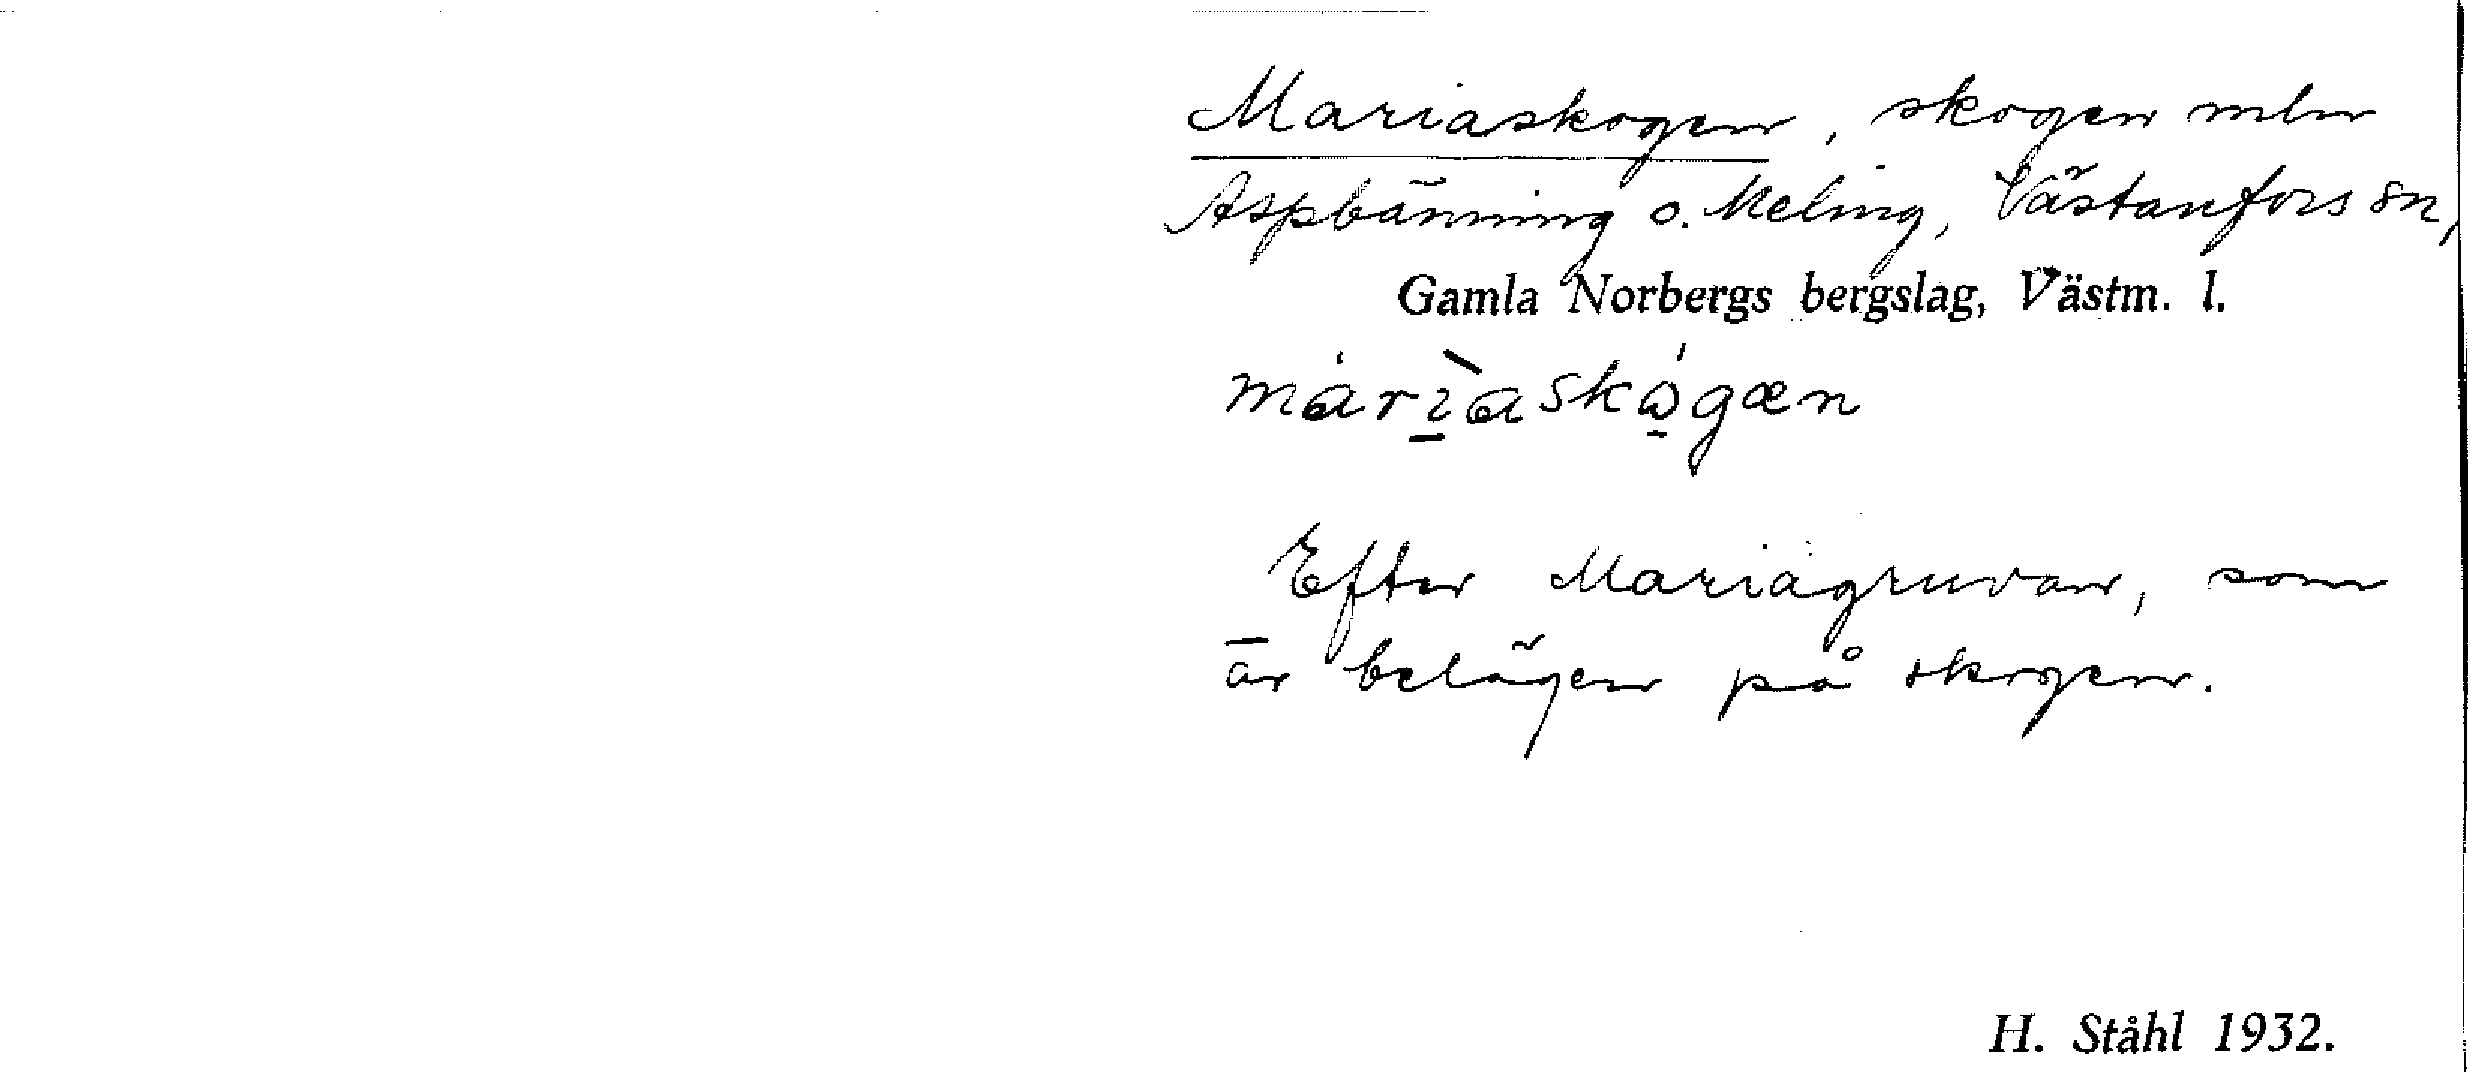 Mariaskogen, skogen mln
Aspbänning o. Meling, Västanfors sn,
Gamla Norbergs bergslag, Västm. l.
Efter Mariagruvan, som
är belägen på skogen.
H. Ståhl 1932.